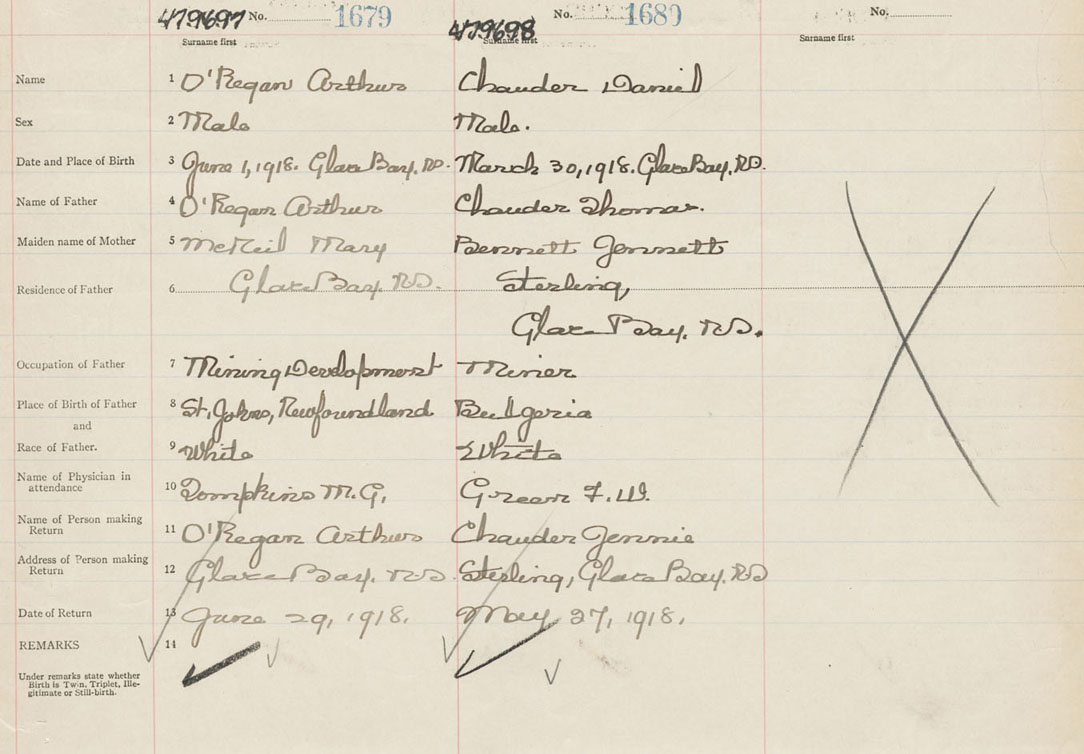 479697 No. 1679 479698 No. 1680 No.
Surname first Surname first Surname first
Name 1 O'Regan Arthur Chauder Daniel
Sex 2 Male Male.
Date and Place of Birth 3 June 1, 1918. Glace Bay, NS. March 30, 1918. Glace Bay, NS.
Name of Father 4 O'Regan Arthur Chauder Thomas.
Maiden name of Mother 5 McNeil Mary Bennett Jennett
Residence of Father 6 Glace Bay, NS. Sterling,
Glace Bay, NS.
Occupation of Father 7 Mining Development Miner
Place of Birth of Father 8 St. Johns, Newfoundland Bulgeria
and
Race of Father. 9 White White
Name of Physician in
attendance 10 Tompkins M.G. Green F. W.
Name of Person making
Return 11 O'Regan Arthur Chauder Jennie
Address of Person making
Return 12 Glace Bay, NS. Sterling, Glace Bay, NS
Date of Return 13 June 29, 1918. May 27, 1918.
REMARKS 14
Under remarks state whether
Birth is Twin, Triplet, Ille-
gitimate or Still-birth.